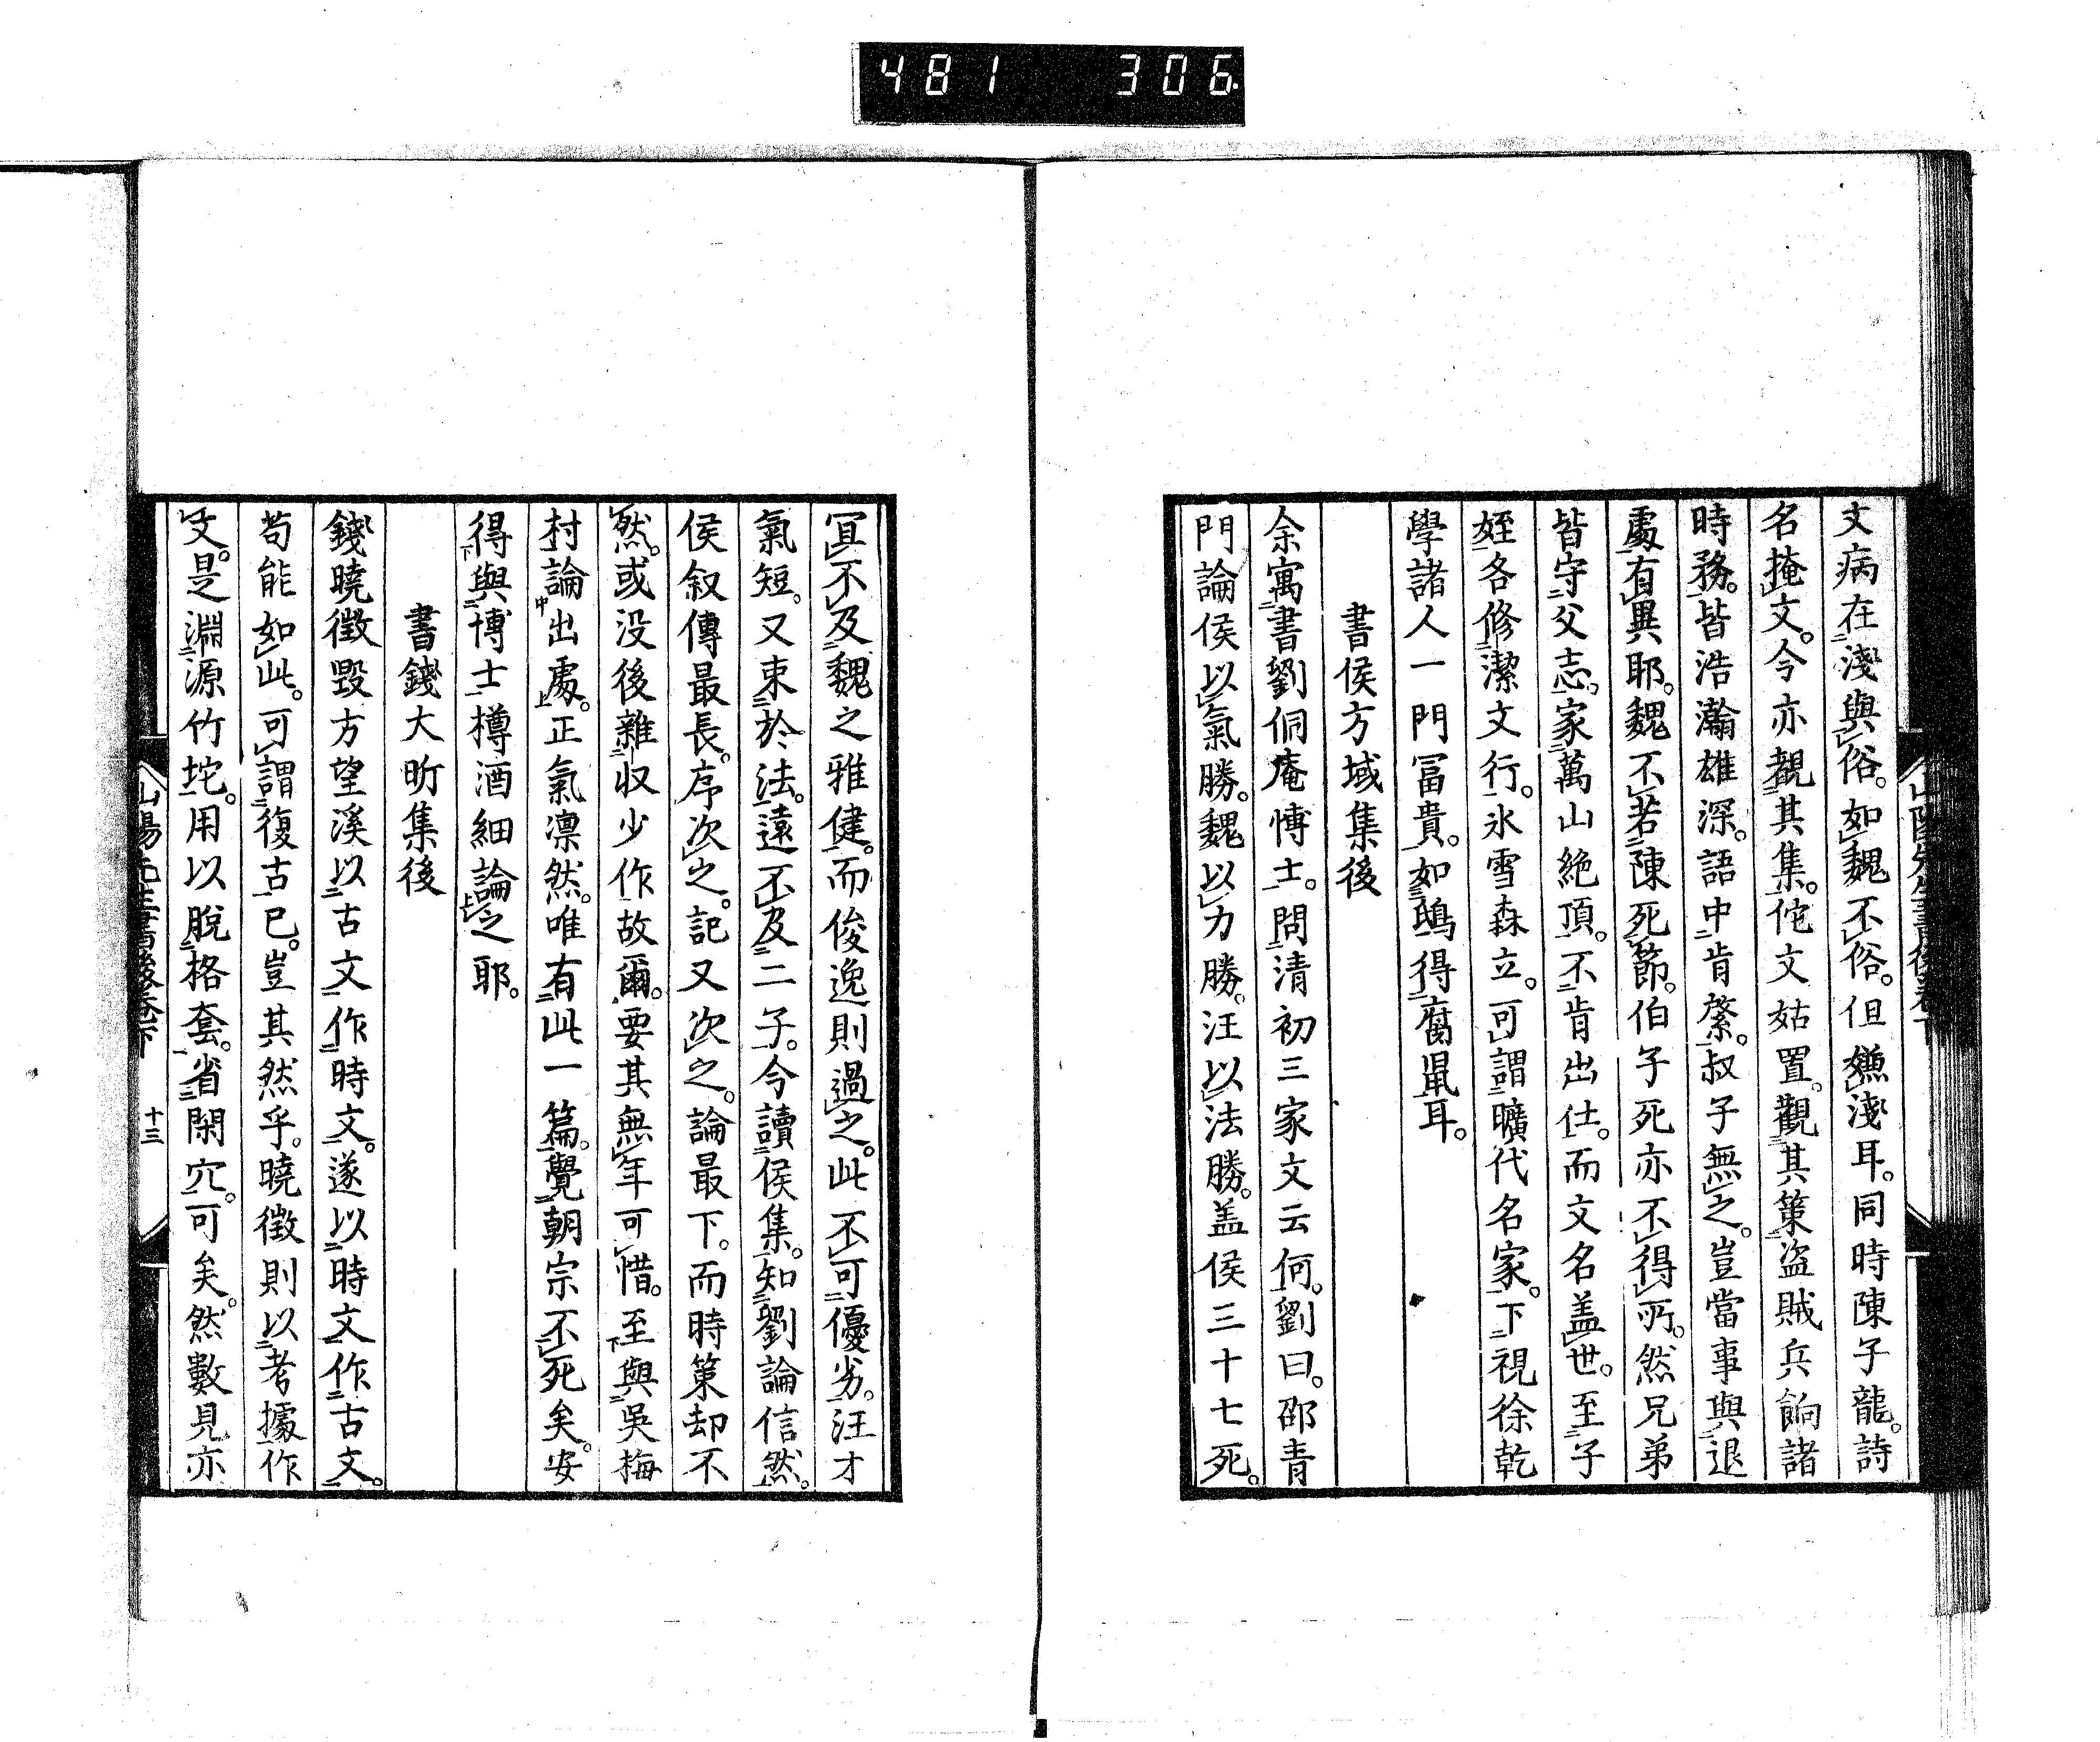 481 306
文病在淺與俗。如魏不俗。但嫌淺耳。同時陳子龍。詩
名掩文。今亦覩其集。佗文姑置。觀其策盜賊兵餉諸
時務。皆浩瀚雄深。語中肯綮。叔子無之。豈當事與退
處有異耶。魏不若陳死節。伯子死亦不得所。然兄弟
皆守父志。家萬山絶頂。不肯出仕。而文名盖世。至子
姪各修潔文行。氷雪森立。可謂曠代名家。下視徐乾
學諸人一門冨貴。如鴟得腐鼠耳。
書侯方域集後
余寓書劉侗庵博士。問清初三家文云何。劉曰。邵青
門論侯以氣勝。魏以力勝。汪以法勝。盖侯三十七死。
冝不及魏之雅健。而俊逸則過之。此不可優劣。汪才
氣短。又束於法。遠不及二子。今讀侯集。知劉論信然。
侯叙傳最長。序次之。記又次之。論最下。而時策却不
然。或没後雜収少作故爾。要其無年可惜。至與吳梅
村論出處。正氣凛然。唯有此一篇。覺朝宗不死矣。安
得與博士樽酒細論之耶。
書錢大昕集後
錢曉徵毀方望溪以古文作時文。遂以時文作古文。
苟能如此。可謂復古已。豈其然乎。曉徵則以考據作
文。是淵源竹垞。用以脫格套。省閑冗。可矣。然數見亦
山陽先生書後卷下 十三